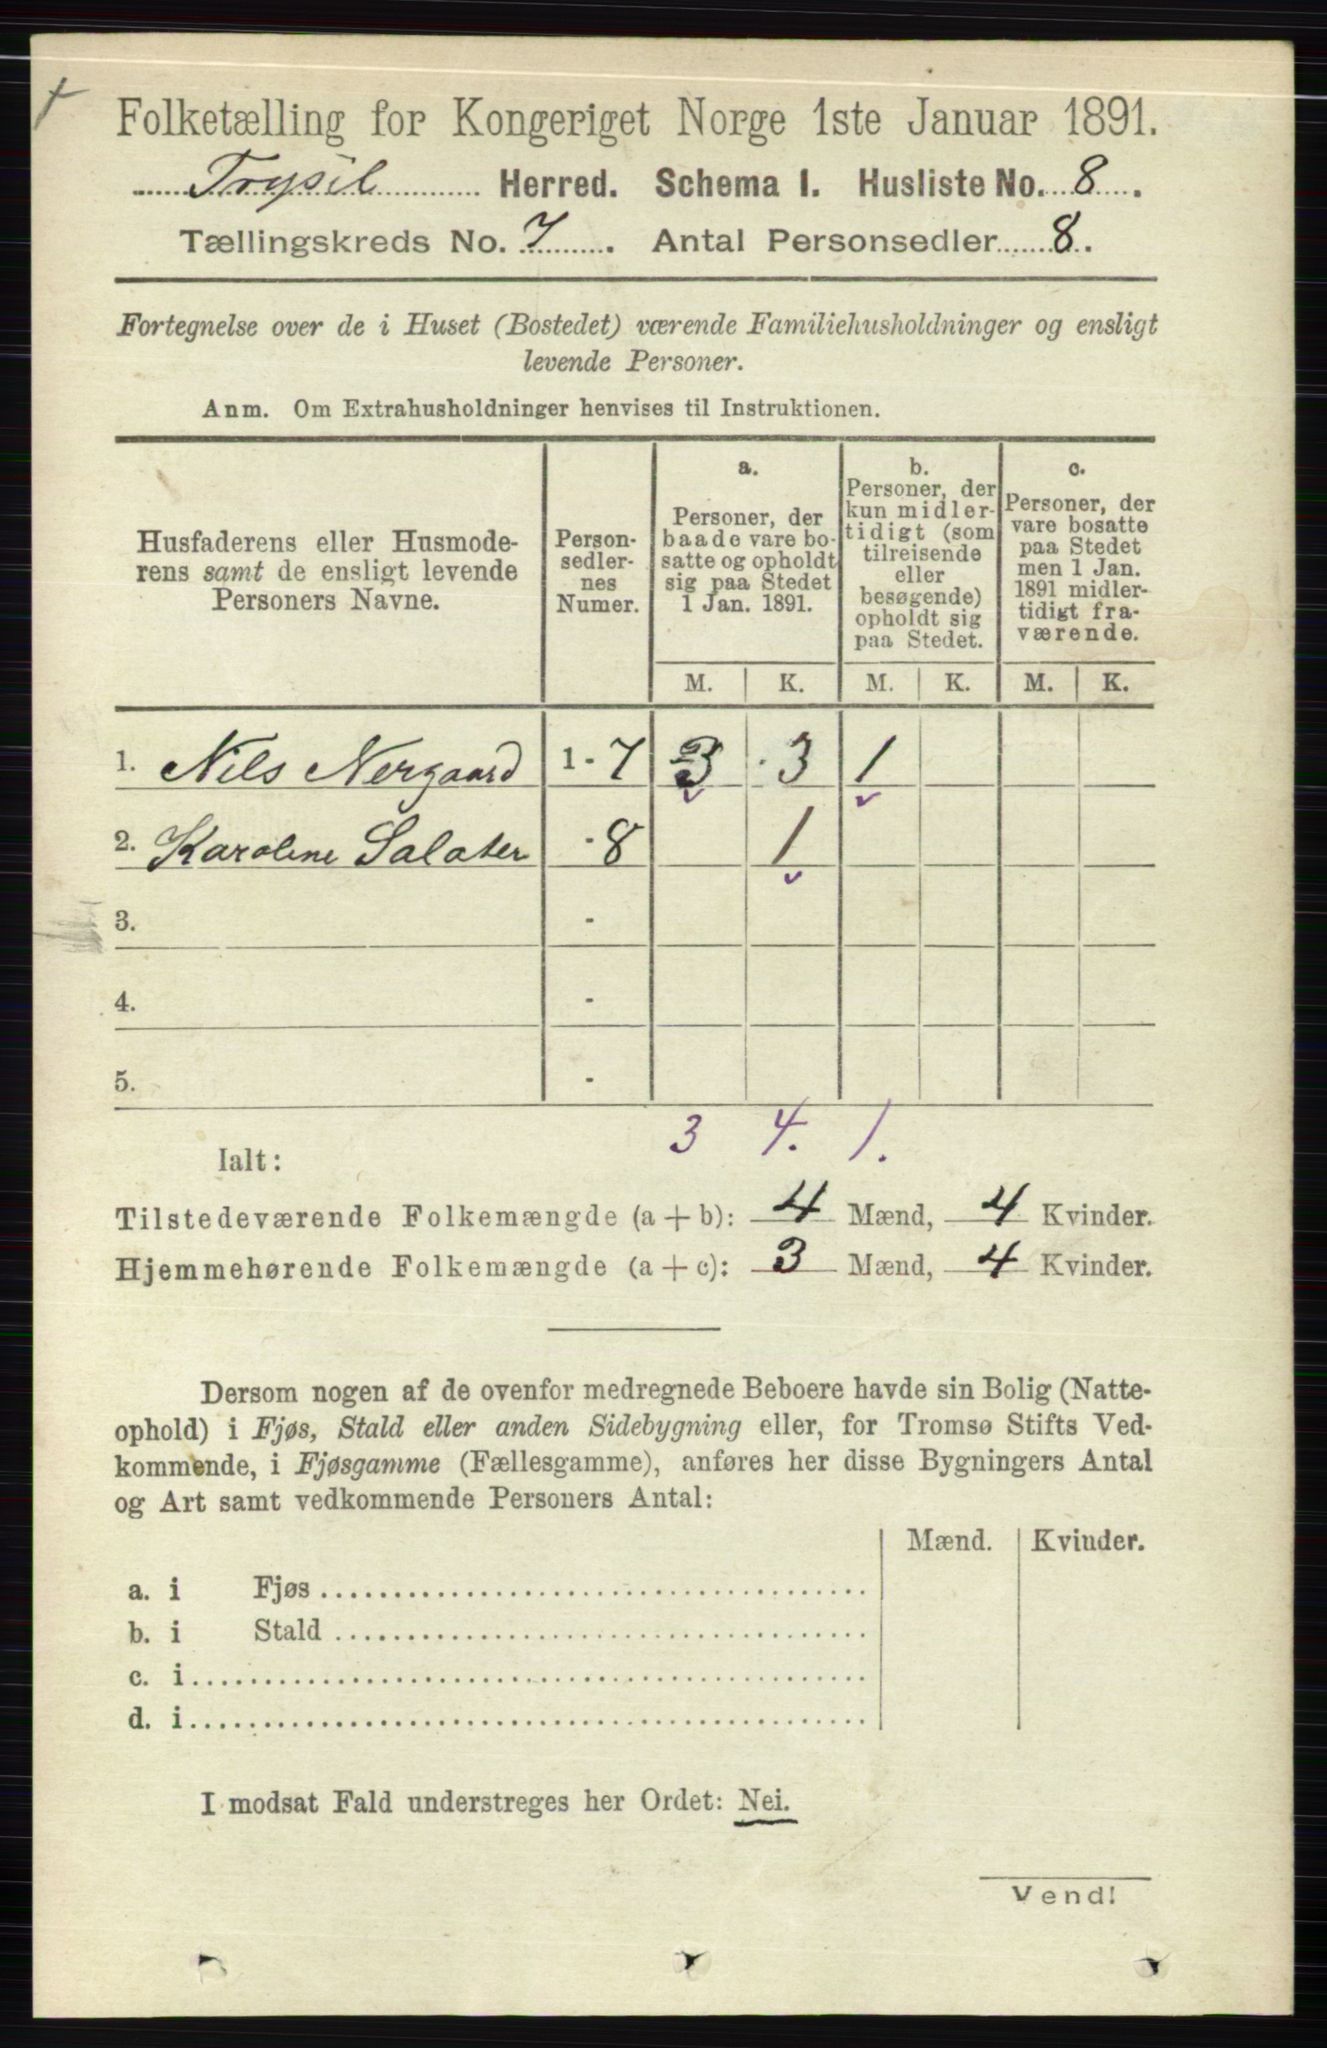 Folketælling for Kongeriget Norge 1ste Januar 1891.
Trysil Herred. Schema I. Husliste No. 8.
Tællingskreds No. 7. Antal Personsedler 8.
Fortegnelse over de i Huset (Bostedet) værende Familiehusholdninger og ensligt
levende Personer.
Anm. Om Extrahusholdninger henvises til Instruktionen.
Husfaderens eller Husmode-
rens samt de ensligt levende
Personers Navne.
Person-
sedler-
nes
Numer.
a.
Personer, der
baade vare bo-
satte og opholdt
sig paa Stedet
1 Jan. 1891.
b.
Personer, der
kun midler-
tidigt (som
tilreisende
eller
besøgende)
opholdt sig
paa Stedet.
c.
Personer, der
vare bosatte
paa Stedet
men 1 Jan.
1891 midler-
tidigt fra-
værende.
M. K. M. K. M. K.
1. Nils Nergaard 1 - 7 3 3 1
2. Karoline Salater - 8 1
3. -
4. -
5. -
3 4. 1.
Ialt:
Tilstedeværende Folkemængde (a + b): 4 Mænd, 4 Kvinder.
Hjemmehørende Folkemængde (a + c): 3 Mænd, 4 Kvinder.
Dersom nogen af de ovenfor medregnede Beboere havde sin Bolig (Natte-
ophold) i Fjøs, Stald eller anden Sidebygning eller, for Tromsø Stifts Ved-
kommende, i Fjøsgamme (Fællesgamme), anføres her disse Bygningers Antal
og Art samt vedkommende Personers Antal:
Mænd. Kvinder.
a. i Fjøs
b. i Stald
c. i
d. i
I modsat Fald understreges her Ordet: Nei.
Vend!